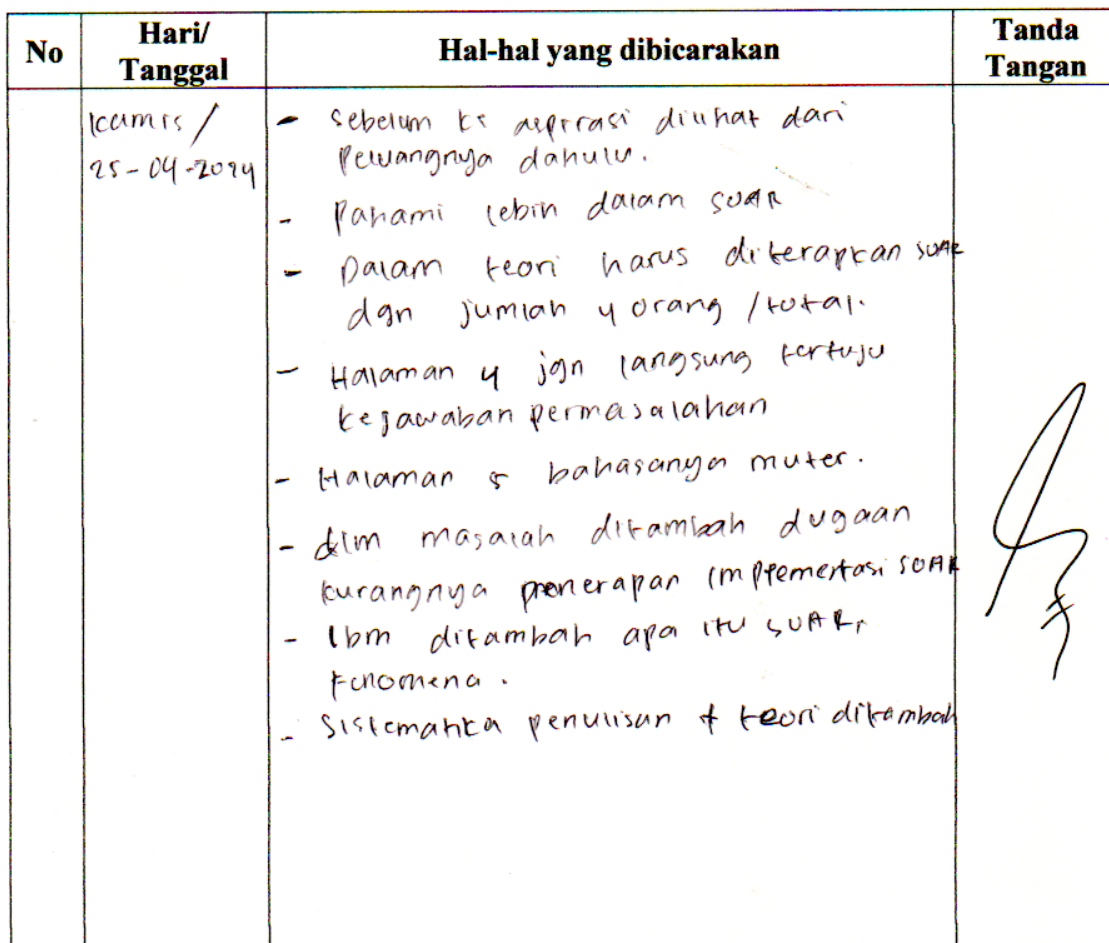 No
Hari/
Tanggal
Hal-hal yang dibicarakan
Tanda
Tangan
Kamis /
25-04-2024
- Sebelum ke aspirasi dilihat dari
Peluangnya dahulu.
- Pahami lebih dalam SOAR
- Dalam teori harus diterapkan SOAR
dgn jumlah 4 orang / total.
- Halaman 4 jgn langsung tertuju
kejawaban permasalahan
- Halaman 5 bahasanya muter.
- dlm masalah ditambah dugaan
kurangnya penerapan implementasi SOAR
- lbm ditambah apa itu SOAR,
Fenomena.
- Sistematika penulisan + teori ditambah